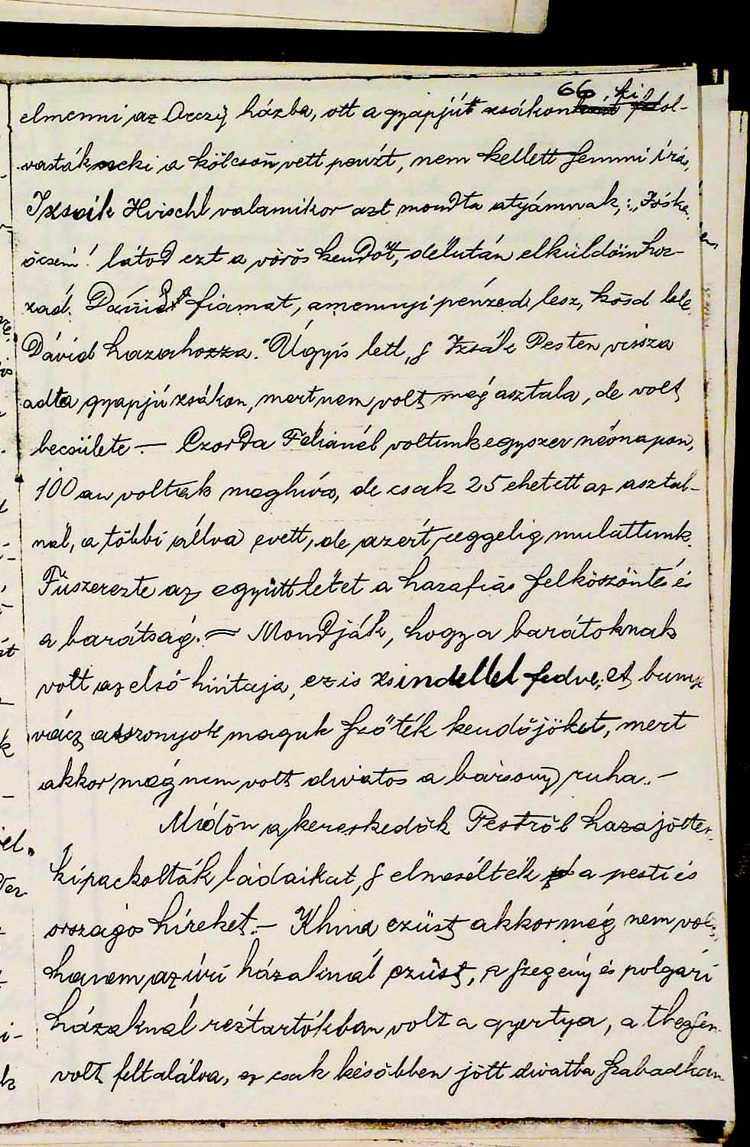 66.
elmenni, az Orczy házba, ott a gyapjút zsákon kifol-
vasták neki a kölcsön vett pénzt, nem kellett semmi írá,
Izsaik Hirschl valamikor azt mondta atyámnak; „Jóska
öcsém! látod ezt a vörös kendőt, délután elküldöm hoz-
zád Dávid fiamat, amennyi pénzed lesz, kösd bele
Dávid hazahozza." Úgyis lett, s Izsák Pesten vissza
adta gyapjú zsákon, mert nem volt még asztala, de volt
becsülete — Czorda Feliánél voltunk egyszer névnapon,
100 an voltak meghíva, de csak 25 ehetett az asztal-
nál, a többi álva evett, de azért reggelig mulattunk.
Fűszerezte az együttlétet a hazafias felköszöntés és
a barátság. = Mondják, hogy a barátoknak
volt az első hintaja, ez is zsindellel fedve, et bunye
vácz asszonyok maguk szőték kendőjöket, mert
akkor még nem volt divatos a bársony ruha. —
Midőn a kereskedők Pestről hazajötte
kipackolták ládaikat, s elmesélték a pesti és
országos híreket. — Khina ezüst akkor még nem vol
hanem az úri házaknál ezüst, a szegény és polgári
házaknál réztartókban volt a gyertya, a
volt feltalálva, ez csak későbben jött divatba Szabadkán